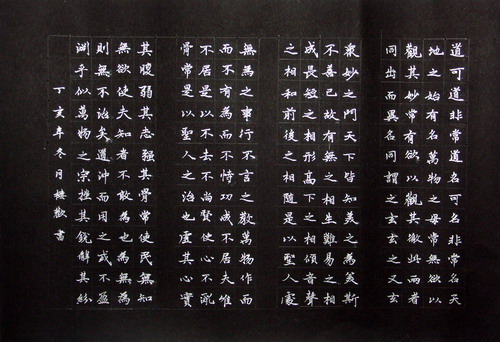 道可道非常道名可名非常名天
地之始有名萬物之母常無欲以
觀其妙常有欲以觀其徼此兩者
同出而異名同謂之玄玄之又玄
眾妙之門天下皆知美之為美斯
不善已故有無之相生難易之相
成長短之相形高下之相傾音聲
之相和前後之相隨是以聖人處
無為之事行不言之教萬物作而
而不有為而不恃功成不居夫唯
不居是以不去不尚賢使心不亂
骨常是以聖人之治也虛其心實
其腹弱其志強其骨常使民無知
無欲使夫知者不敢為也為無為
則無不治矣道沖而用之或不盈
淵乎似萬物之宗挫其銳解其紛
丁亥年冬月樓歡書